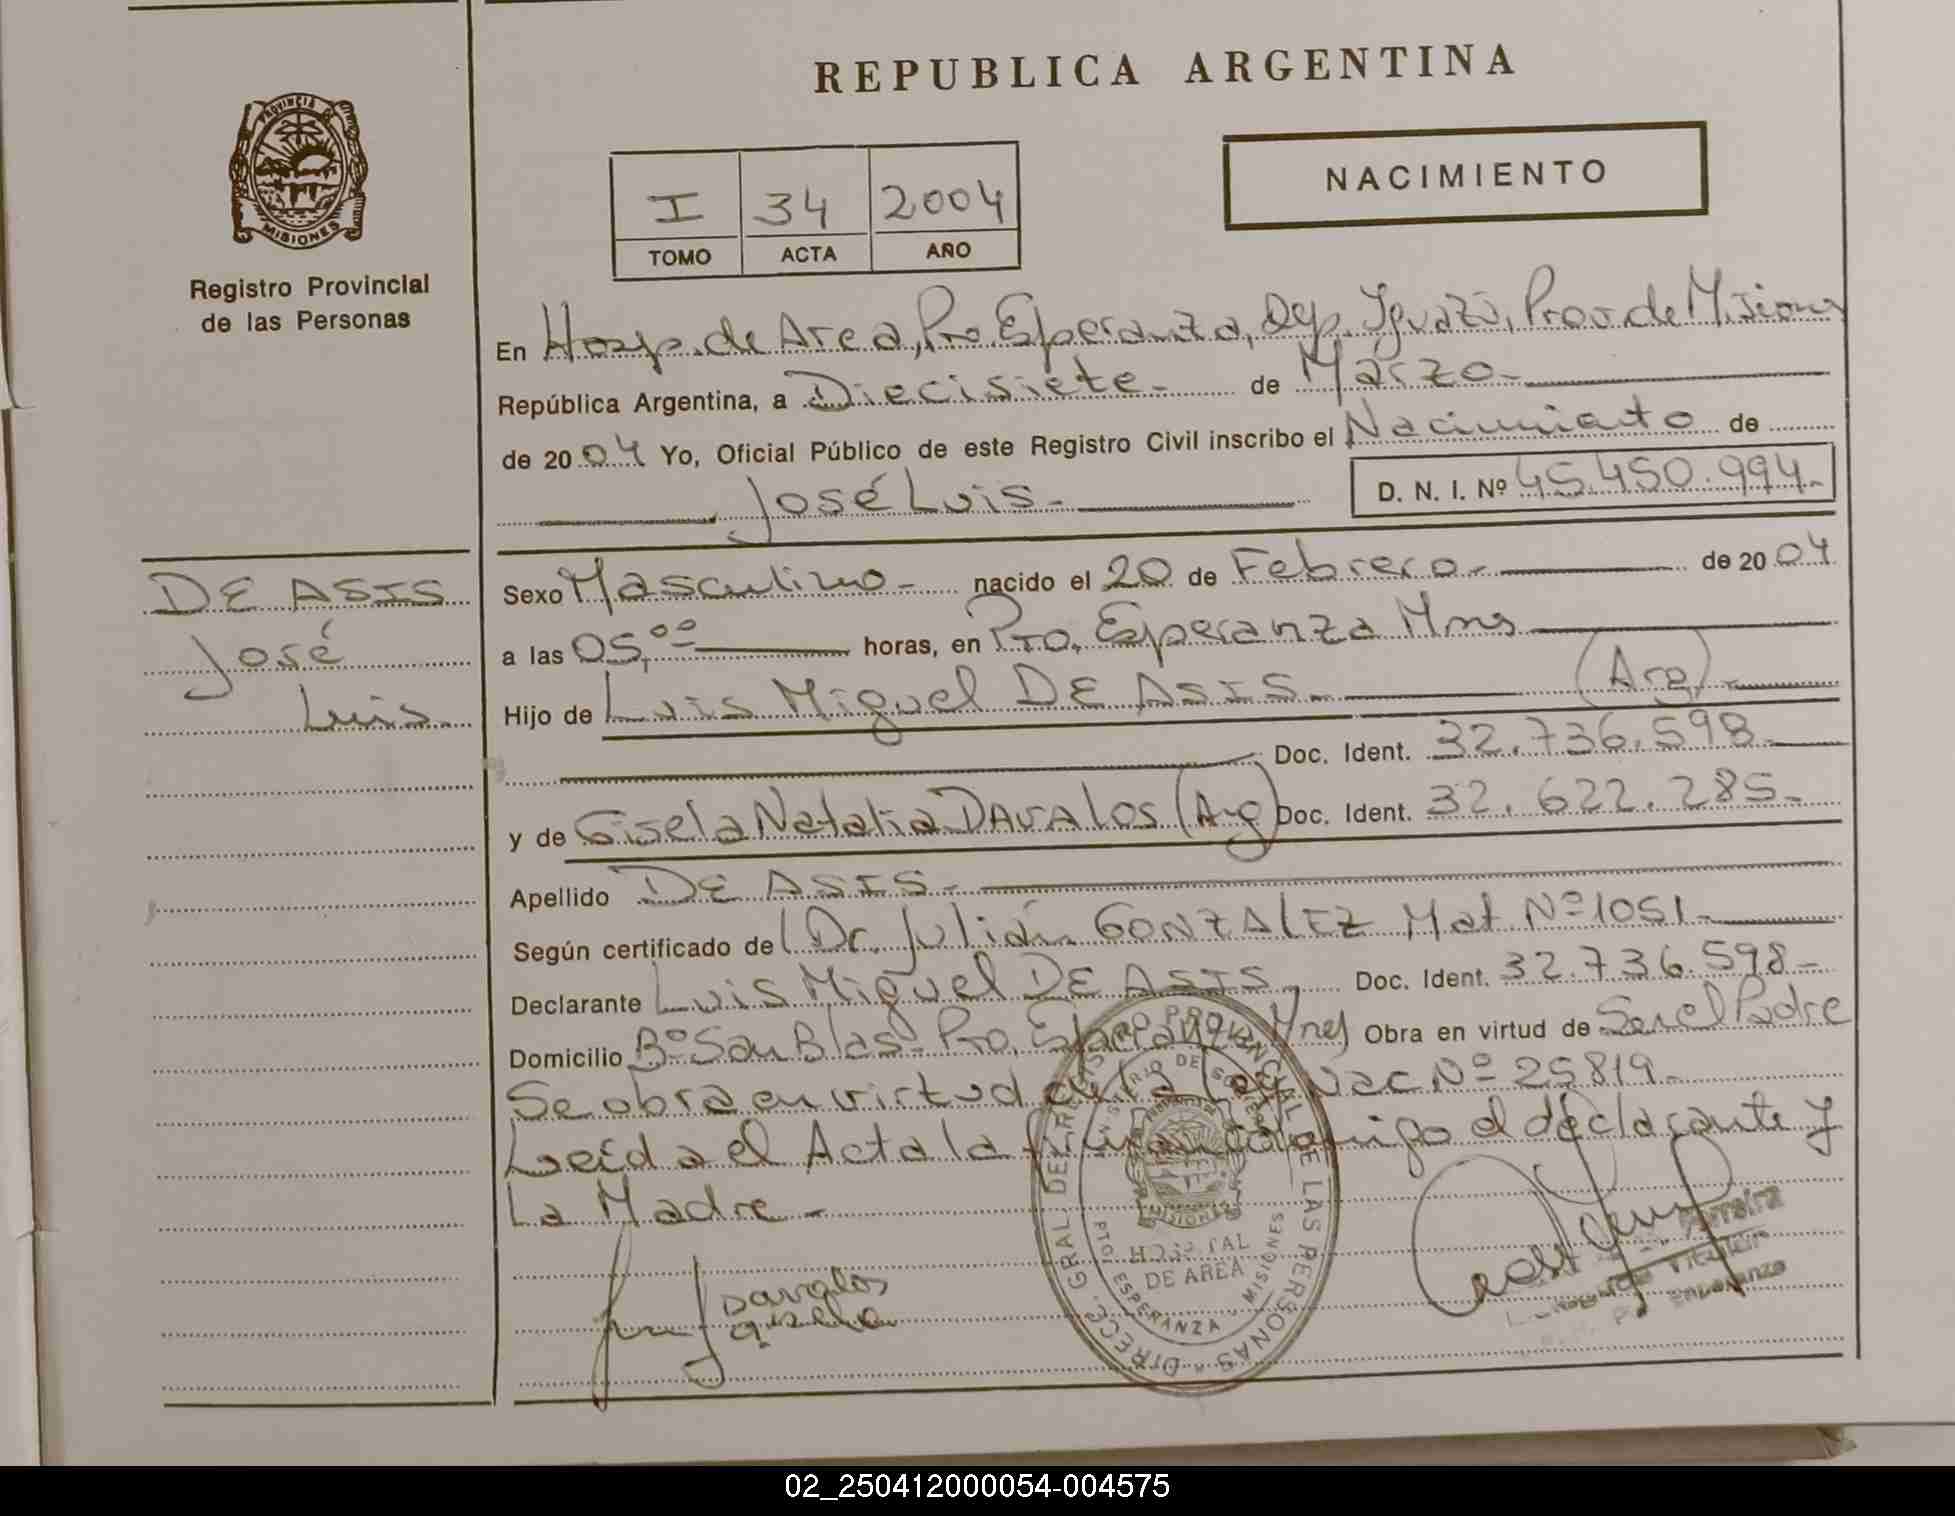 REPUBLICA ARGENTINA
PROVINCIA DE
MISIONES
Registro Provincial
de las Personas
I 34 2004
TOMO ACTA AÑO
NACIMIENTO
En Hosp. de Area, Pto. Esperanza, Dep. Iguazú, Prov. de Misiones
República Argentina, a Diecisiete- de Marzo-
de 2004 Yo, Oficial Público de este Registro Civil inscribo el Nacimiento de
José Luis- D. N. I. Nº 45.450.994-
DE ASIS
José
Luis-
Sexo Masculino- nacido el 20 de Febrero- de 2004
a las 05,00 horas, en Pto. Esperanza Mnes
Hijo de Luis Miguel DE ASIS- (Arg)-
Doc. Ident. 32.736.598-
y de Gisela Natalia DAVALOS (Arg) Doc. Ident. 32.622.285-
Apellido DE ASIS-
Según certificado de Dr. Julián GONZALEZ Mat. Nº 1051-
Declarante Luis Miguel DE ASIS- Doc. Ident. 32.736.598-
Domicilio Bº San Blas- Pto. Esperanza Mnes Obra en virtud de Ser el Padre
Se obra en virtud de la Ley Nac Nº 25819-
Leída el Acta la firman conmigo el declarante y
La Madre-
Davalos
Gisela
DIRECC. GRAL DE REGISTRO PROVINCIAL DE LAS PERSONAS
MINISTERIO DE GOBIERNO
MISIONES
HOSPITAL
DE AREA
PTO ESPERANZA - MISIONES
Ferreira
Titular
Esperanza
02_250412000054-004575